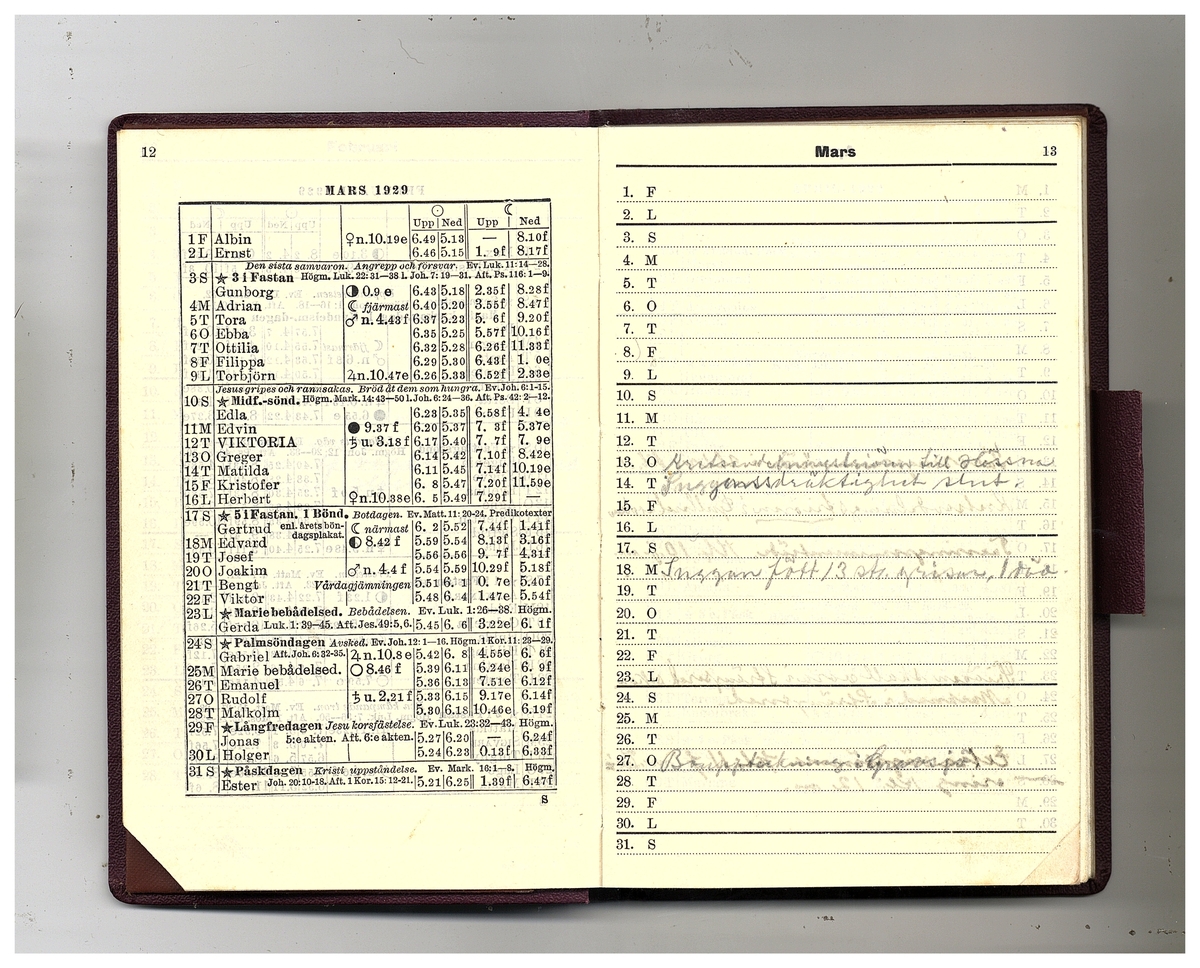 12
MARS 1929
☉ ☾
Upp Ned Upp Ned
1 F Albin ♀ n. 10.19 e 6.49 5.13 — 8.10f
2 L Ernst 6.46 5.15 1. 9f 8.17f
Den sista samvaron. Angrepp och försvar. Ev. Luk. 11: 14—28.
3 S ★ 3 i Fastan Högm. Luk. 22: 31—38 l. Joh. 7: 19—31. Aft. Ps. 116: 1—9.
Gunborg ◑ 0.9 e 6.43 5.18 2.35f 8.28f
4 M Adrian ☾ fjärmast 6.40 5.20 3.55f 8.47f
5 T Tora ♂ n. 4.43 f 6.37 5.23 5. 6f 9.20f
6 O Ebba 6.35 5.25 5.57f 10.16f
7 T Ottilia 6.32 5.28 6.26f 11.33f
8 F Filippa 6.29 5.30 6.43f 1. 0e
9 L Torbjörn ♃ n. 10.47 e 6.26 5.33 6.52f 2.33e
Jesus gripes och rannsakas. Bröd åt dem som hungra. Ev. Joh. 6: 1-15.
10 S ★ Midf.-sönd. Högm. Mark. 14: 43—50 l. Joh. 6: 24—36. Aft. Ps. 42: 2—12.
Edla 6.23 5.35 6.58f 4. 4e
11 M Edvin ● 9.37 f 6.20 5.37 7. 3f 5.37e
12 T VIKTORIA ♄ u. 3.18 f 6.17 5.40 7. 7f 7. 9e
13 O Greger 6.14 5.42 7.10f 8.42e
14 T Matilda 6.11 5.45 7.14f 10.19e
15 F Kristofer 6. 8 5.47 7.20f 11.59e
16 L Herbert ♀ n. 10.38 e 6. 5 5.49 7.29f —
17 S ★ 5 i Fastan. 1 Bönd. Botdagen. Ev. Matt. 11: 20-24. Predikotexter
Gertrud enl. årets bön- ☾ närmast 6. 2 5.52 7.44f 1.41f
dagsplakat.
18 M Edvard ◐ 8.42 f 5.59 5.54 8.13f 3.16f
19 T Josef 5.56 5.56 9. 7f 4.31f
20 O Joakim ♂ n. 4.4 f 5.54 5.59 10.29f 5.18f
21 T Bengt Vårdagjämningen 5.51 6. 1 0. 7e 5.40f
22 F Viktor 5.48 6. 4 1.47e 5.54f
23 L ★ Marie bebådelsed. Bebådelsen. Ev. Luk. 1: 26—38. Högm.
Gerda Luk. 1: 39—45. Aft. Jes. 49: 5, 6. 5.45 6. 6 3.22e 6. 1f
24 S ★ Palmsöndagen Avsked. Ev. Joh. 12: 1—16. Högm. 1 Kor. 11: 23—29.
Gabriel Aft. Joh. 6: 32-35. ♃ n. 10.8 e 5.42 6. 8 4.55e 6. 6f
25 M Marie bebådelsed. ○ 8.46 f 5.39 6.11 6.24e 6. 9f
26 T Emanuel 5.36 6.13 7.51e 6.12f
27 O Rudolf ♄ u. 2.21 f 5.33 6.15 9.17e 6.14f
28 T Malkolm 5.30 6.18 10.46e 6.19f
29 F ★ Långfredagen Jesu korsfästelse. Ev. Luk. 23: 32—43. Högm.
Jonas 5:e akten. Aft. 6:e akten. 5.27 6.20 — 6.24f
30 L Holger 5.24 6.23 0.13f 6.33f
31 S ★ Påskdagen Kristi uppståndelse. Ev. Mark. 16: 1—8. Högm.
Ester Joh. 20: 10-18. Aft. 1 Kor. 15: 12-21. 5.21 6.25 1.39f 6.47f
S
Mars 13
1. F
2. L
3. S
4. M
5. T
6. O
7. T
8. F
9. L
10. S
11. M
12. T
13. O till Hössna
14. T Suggans dräktighet slut.
15. F
16. L
17. S
18. M Suggan fött 13 st. grisar, 1 död.
19. T
20. O
21. T
22. F
23. L
24. S
25. M
26. T
27. O
28. T
29. F
30. L
31. S